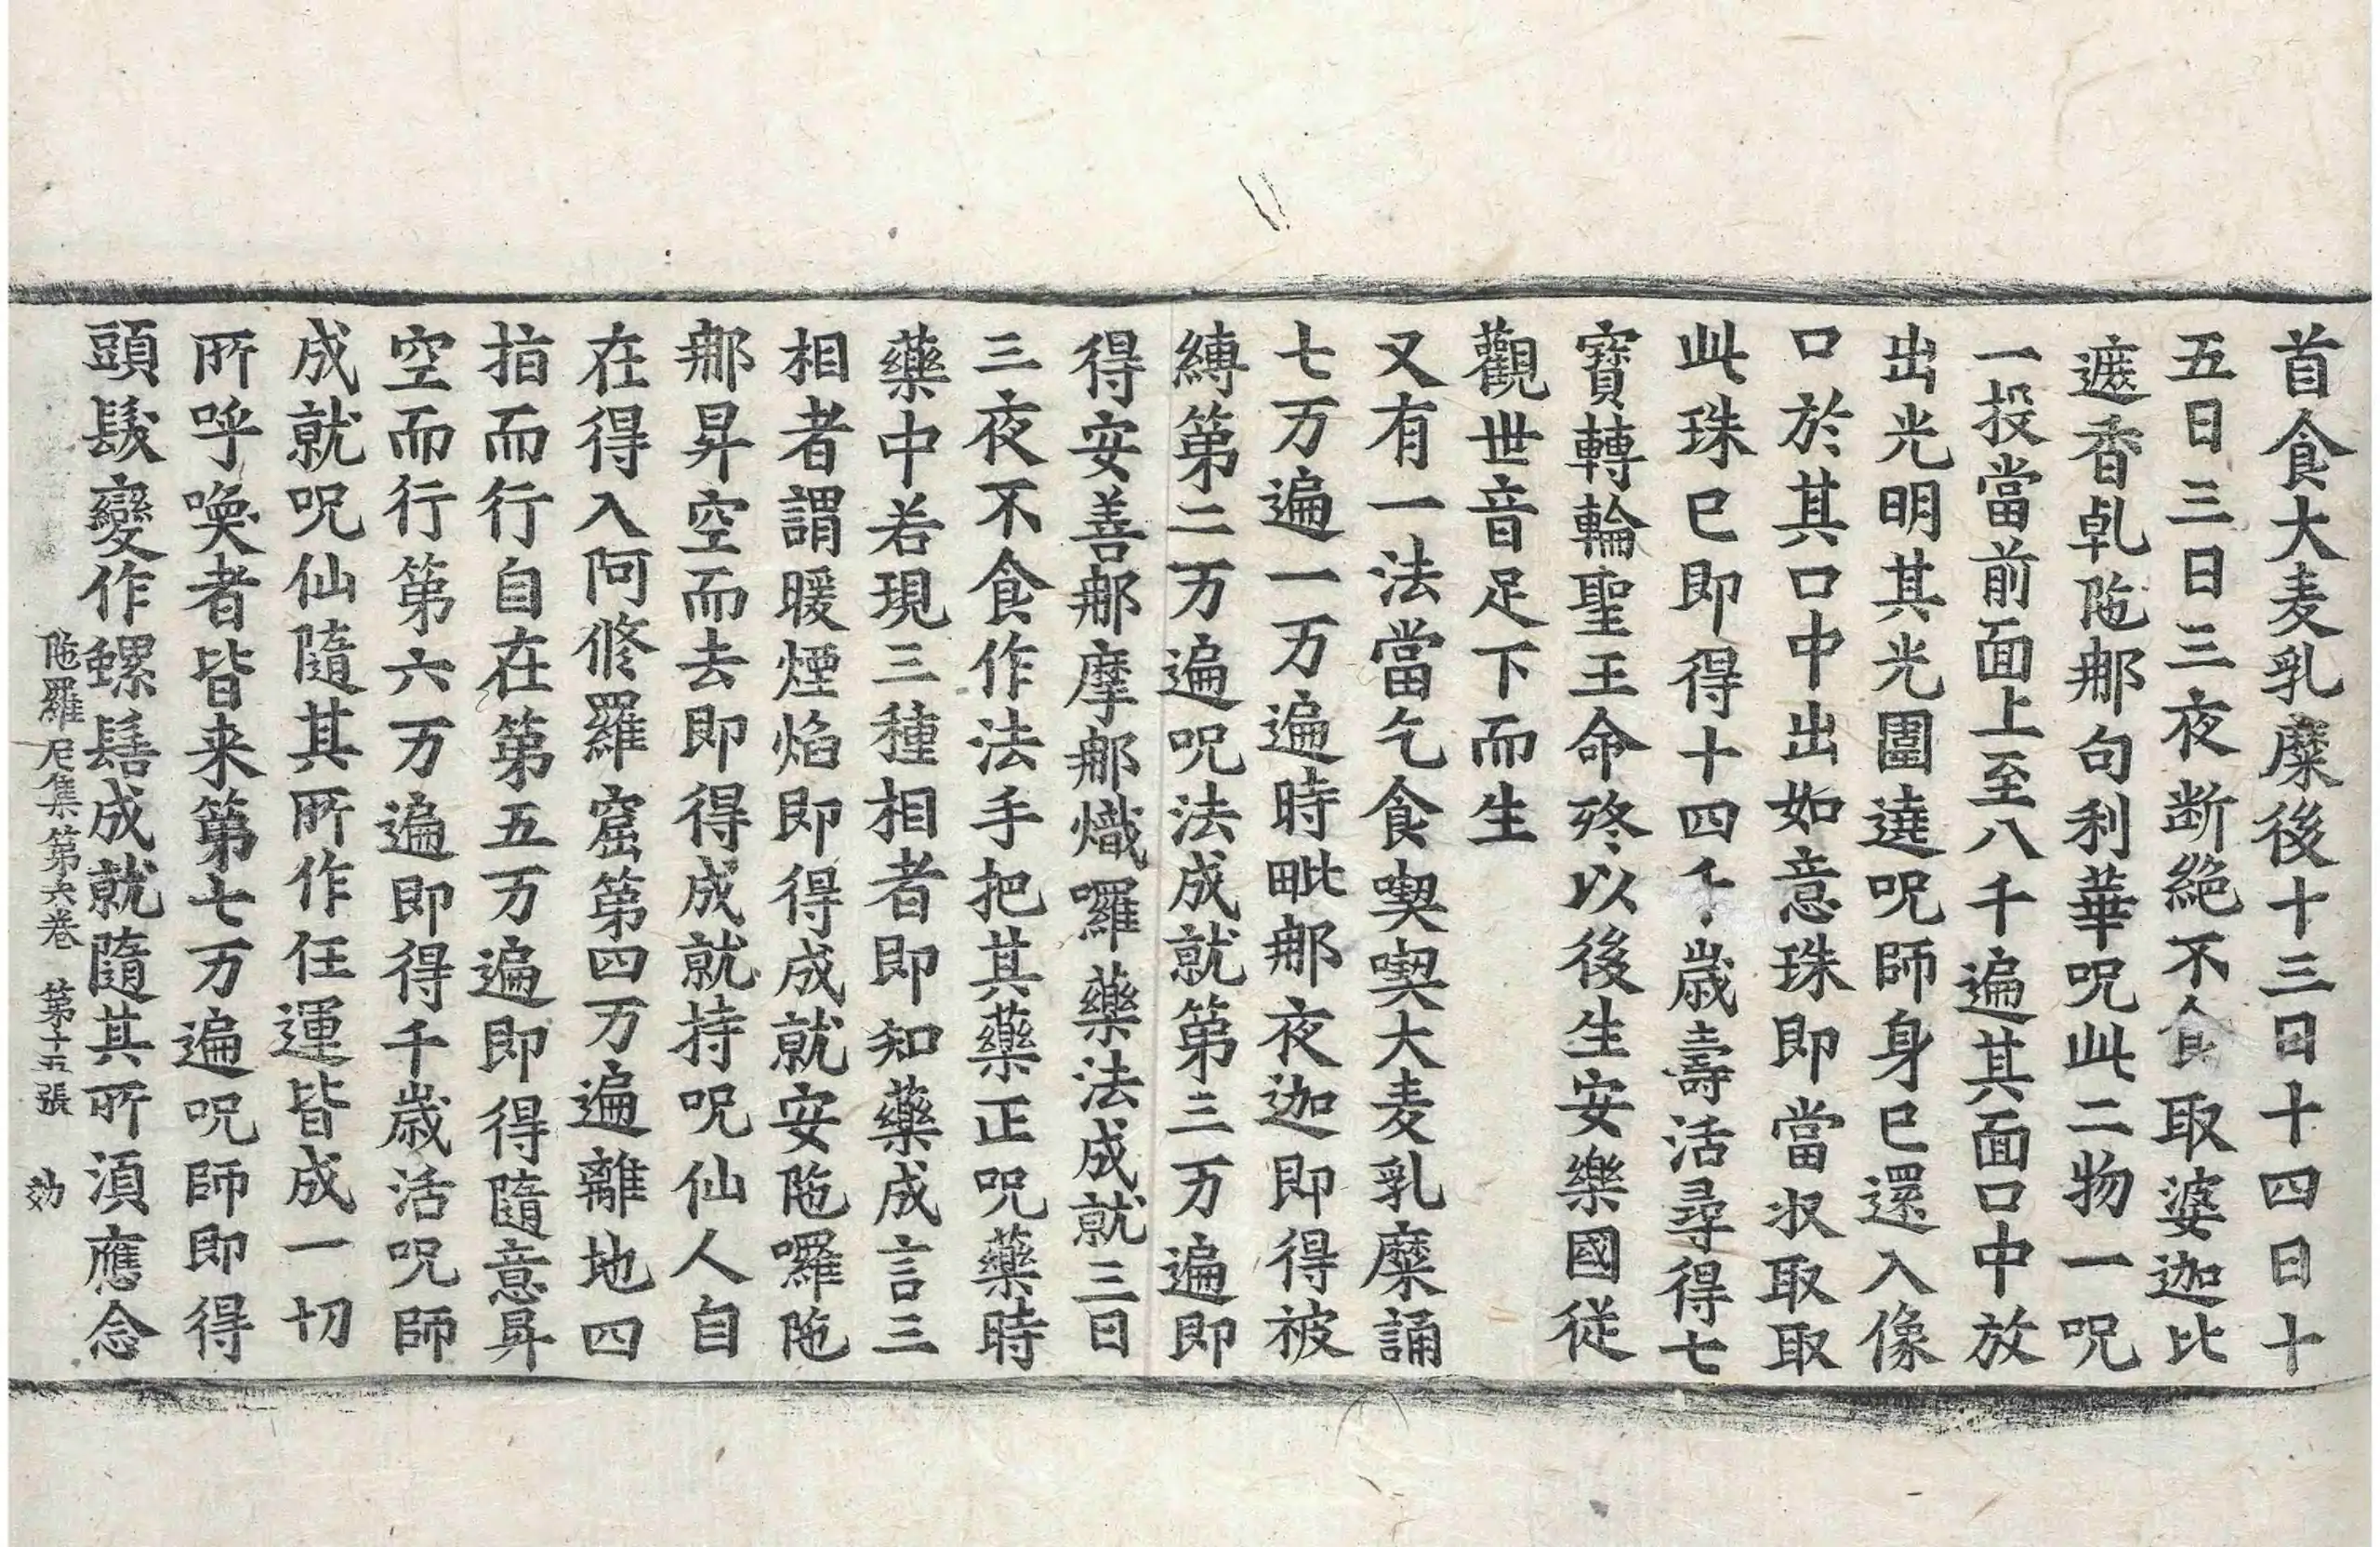 首食大麦乳糜後十三日十四日十
五日三日三夜断絶不食取婆迦比
遮香乹陁𨚗句利華呪此二物一呪
一投當前面上至八千遍其面口中放
出光明其光光圍遶呪師身已還入像
口於其口中出如意珠即當收取取
此珠已即得十四千歳壽活尋得七
寳轉輪聖王命終以後生安樂國從
觀世音足下而生
又有一法當乞食喫喫大麦乳糜誦
七万遍一万遍時毗𨚗夜迦即得被
縛第二万遍呪法成就第三万遍即
得安善𨚗摩𨚗熾囉藥法成就三日
三夜不食作法手把其藥正呪藥時
藥中若現三種相者即知藥成言三
相者謂暖煙焰即得成就安陁囉陁
𨚗昇空而去即得成就持呪仙人自
在得入阿修羅窟第四万遍離地四
指而行自在第五万遍即得隨意昇
空而行第六万遍即得千歳活呪師
成就呪仙隨其所作任運皆成一切
所呼喚者皆来第七万遍呪師即得
頭髮變作螺髻成就隨其所湏應念
陁羅尼集第六卷 第十五張 効